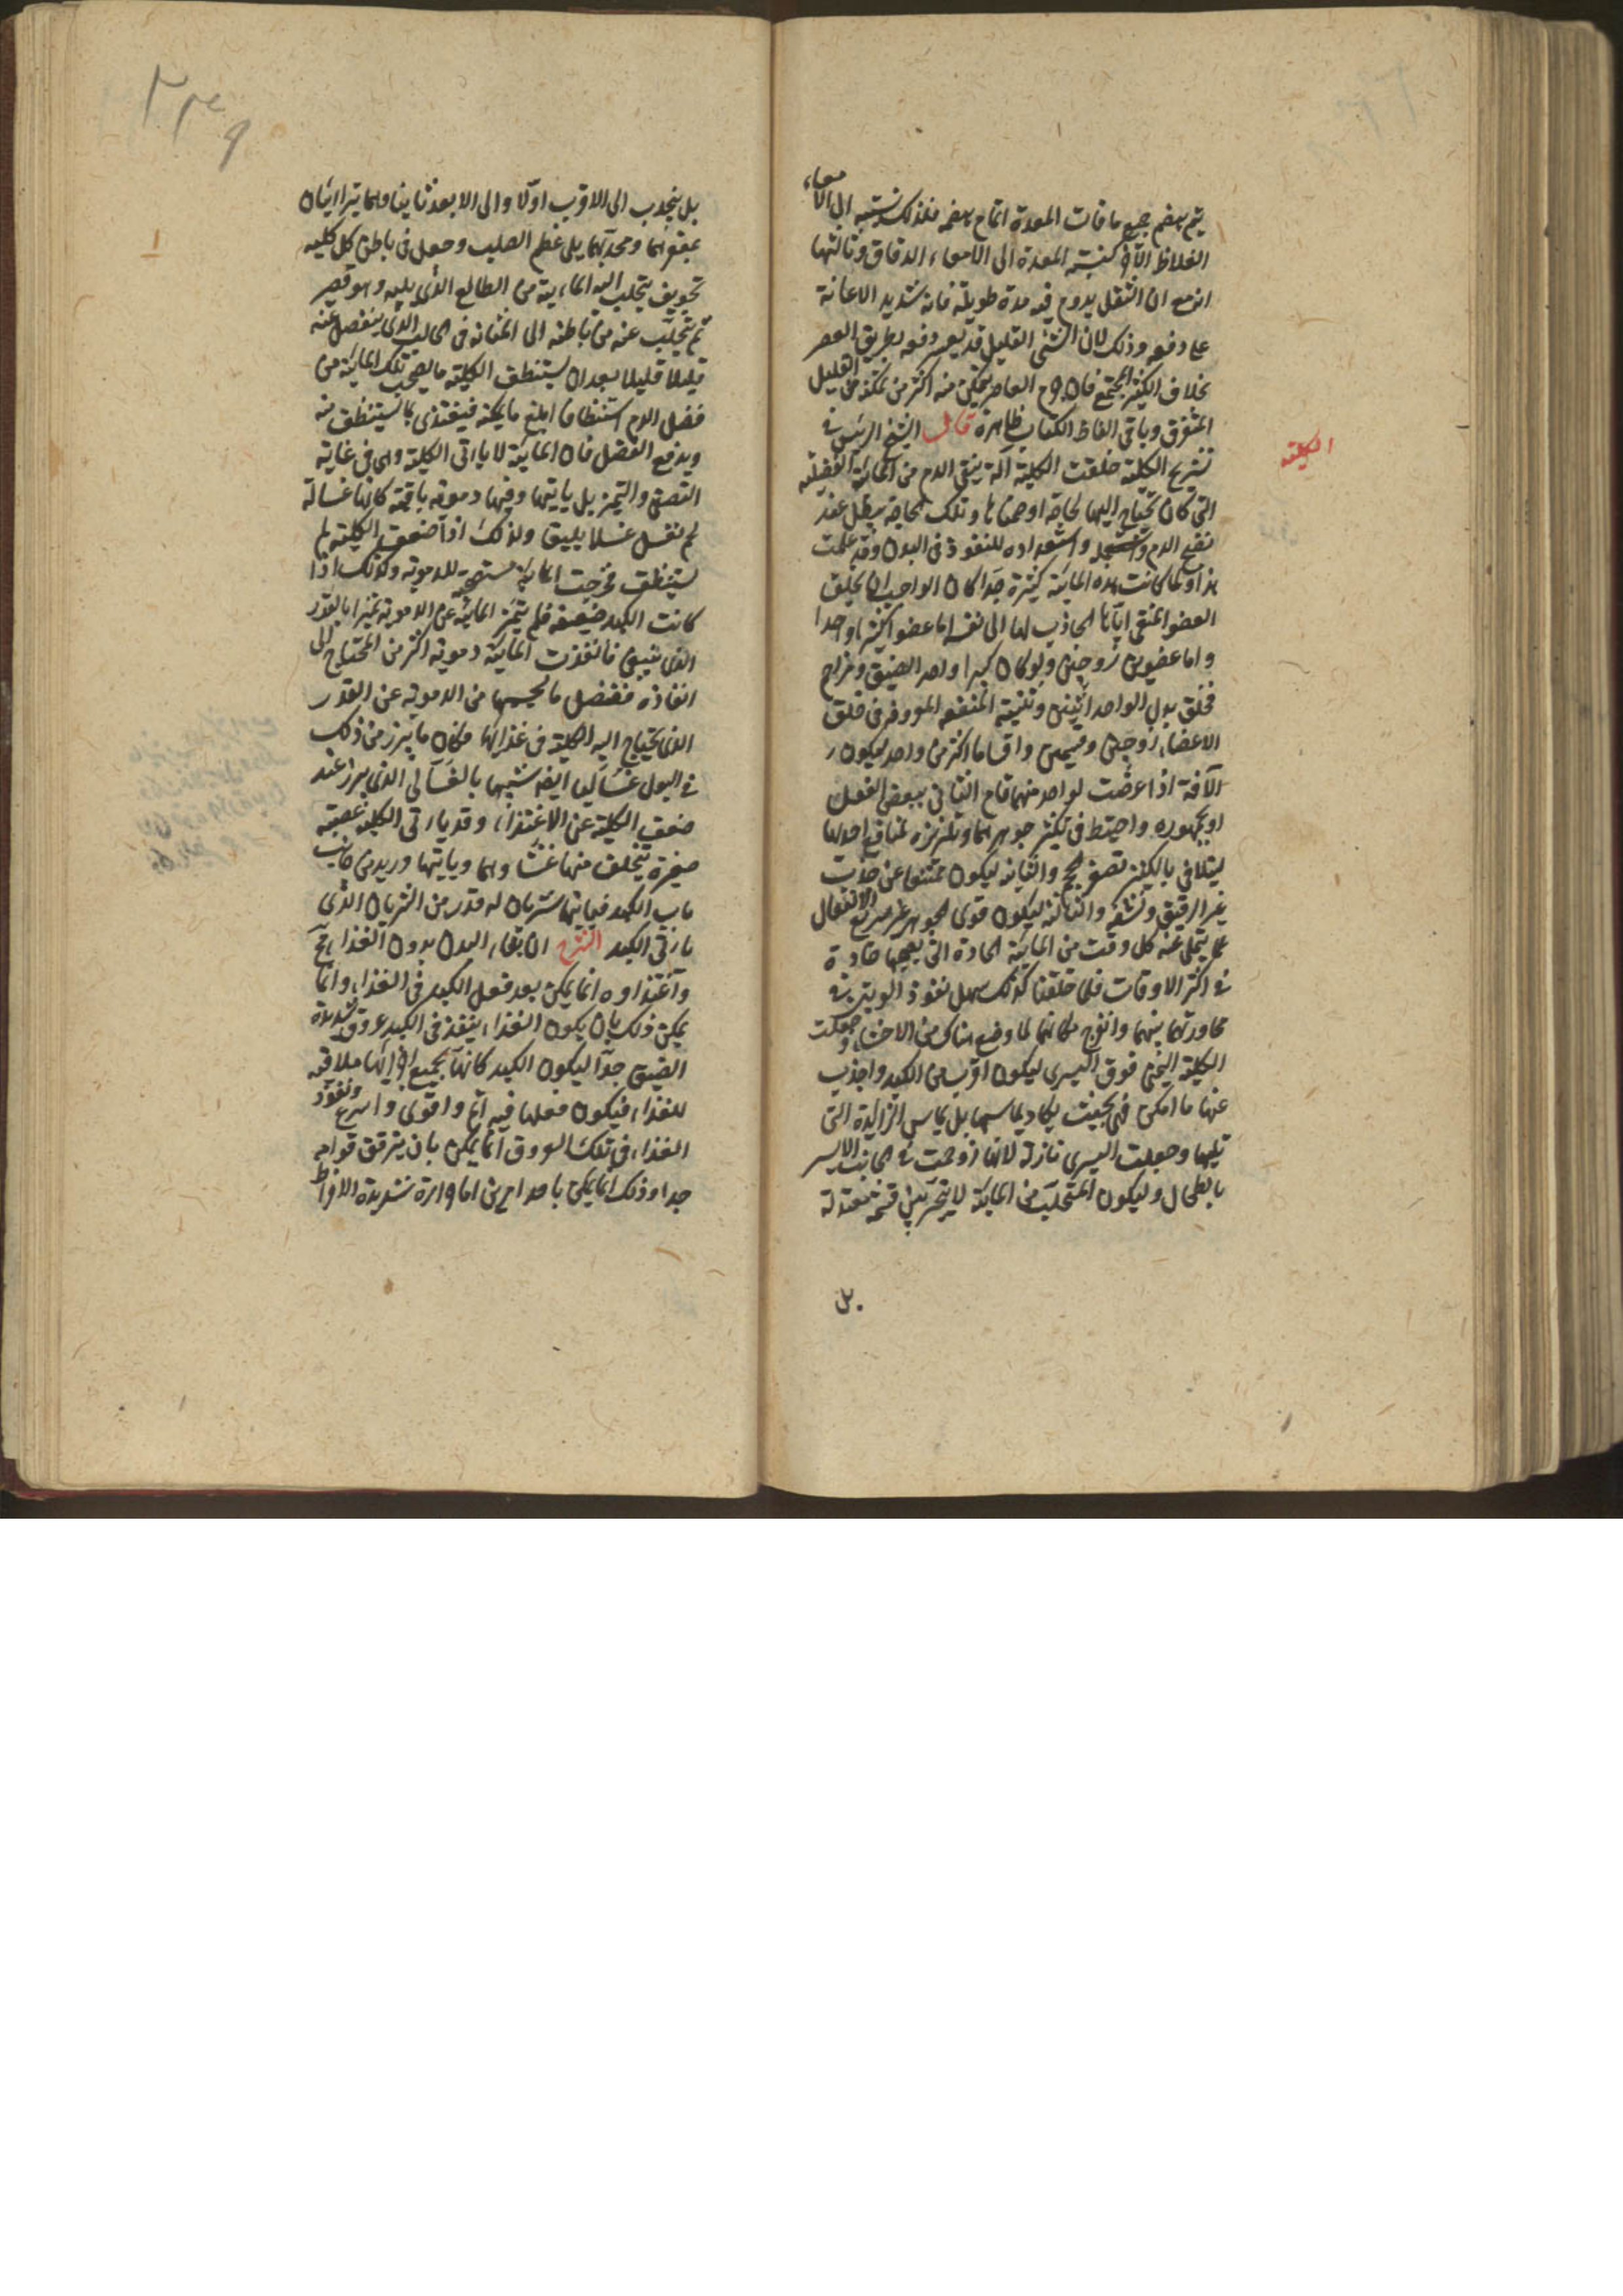 يتم بهضم جميع ما فات المعدة اتمام هضمه فلذلك نسبته الى الامعاء
الغلاظ الآخر كنسبة المعدة الى الامعاء الدقاق وثالثها
انه مع ان الثفل يدوم فيه مدة طويلة فانه شديد الاعانة
على دفعه وذلك لان الشئ القليل قد يعسر دفعه بطريق العصر
بخلاف الكثير المجتمع فان العاصر يتمكن منه اكثر من تمكنه من القليل
المتفرق وباقى الفاظ الكتاب ظاهرة قال الشيخ الرئيس فى
تشريح الكلية خلقت الكلية آلة ينقى الدم من المائية الفضلية
التى كان يحتاج اليها لحاجة اوضحناها وتلك الحاجة يبطل عند
نضج الدم واستعداده للنفوذ فى البدن وقد علمت
هذا ولما كانت هذه المائية كثيرة جدا كان الواجب ان يخلق
العضو المنقى اياها الجاذب لها الى نفسه اما عضوا كبيرا واحدا
واما عضوين زوجين ولو كان كبيرا واحدا لضيق وزاحم
فخلق بدل الواحد اثنين وتثنيته المنفعة المعروفة فى خلق
الاعضاء زوجين وقسمين واقساما اكثر من واحد ليكون
الآفة اذا عرضت لواحد منهما قام الثانى ببعض الفعل
او بجمهوره واحتيط فى تكثيز جوهرهما وتلزيزه لمنافع احدها
ليتلافى بالتكثيز تصغير الحجم والثانية ليكون ممتنعا عن جذب
غير الرقيق ونشفه والثالثة ليكون قوى الجوهر غير سريع الانفعال
عما يمتلى عنه كل وقت من المائية الحادة التى يصحبها حادة
فى اكثر الاوقات فلما خلقتا كذلك سهل نفوذ الوتين فى
مجاورتهما بينهما وانفرج مكانهما لما وضع هناك من الاحشاء وجعلت
الكلية اليمنى فوق اليسرى ليكون اقرب من الكبد واجذب
عنها ما امكن فهى بحيث يكاد يماسها بل يماس الزايدة التى
تليها وجعلت اليسرى نازلة لانها زوحمت فى الجانب الايسر
بالطحال وليكون المتحلب من المائية لا يتحير بين قسمة معتدلة
بل
الكلية
٢٣٩
بل ينجذب الى الاقرب اولا والى الابعد ثانيا وهما يتراايان
بمقعرهما ومحدبهما يلى عظم الصلب وجعل فى باطن كل كلية
تجويف يتحلب اليه المائية من الطالع الذى يليه وهو قصير
ثم يتحلب عنه من باطنه الى المثانة فى الحالب الذى ينفصل عنه
قليلا قليلا بعد ان يستنظف الكلية ما يصحب تلك المائية من
فضل الدم استنظافا ابلغ ما يمكنه فيغتذى بما يستنظف منه
ويدفع الفضل فان المائية لا ياتى الكلية وهى فى غاية
التصفى والتميز بل ياتيها وفيها دموية باقية كانها غسالة
لم تغسل غسلا بليغا ولذلك اذا ضعفت الكلية لم
يستنظف فخرجت المائية مستصحبة للدموية وكذلك اذا
كانت الكبد ضعيفة فلم يتميز المائية عن الدموية تميزا بالقدر
الذى ينبغى فانفذت المائية دموية اكثر من المحتاج الى
انفاذه ففضل ما يصحبها من الدموية عن القدر
الذى يحتاج اليه الكلية فى غذائها فكان ما يبرز من ذلك
فى البول غساليا ايضا شبيها بالغسالى الذى يبرز عند
ضعف الكلية عن الاغتذاء وقد ياتى الكلية عصبة
صغيرة يتخلق منها غشاوهما وياتيها وريد من جانب
باب الكبد فياتيها شريان له قدر من الشريان الذى
ياتى الكبد الشرح ان بقاء البدن بدون الغذاء مح
واغتذاوه انما يمكن بعد فعل الكبد فى الغذاء وانما
يمكن ذلك بان يكون الغذاء ينفذ فى الكبد عروق شديدة
الضيق جدا ليكون الكبد كانها بجميع اجزائها ملاقية
للغذاء فيكون فعلها فيه اتم واقوى واسرع ونفوذ
الغذاء فى تلك العروق انما يمكن بان يترقق قوامه
جدا وذلك انما يمكن باحد امرين اما حرارة شديدة الافراط